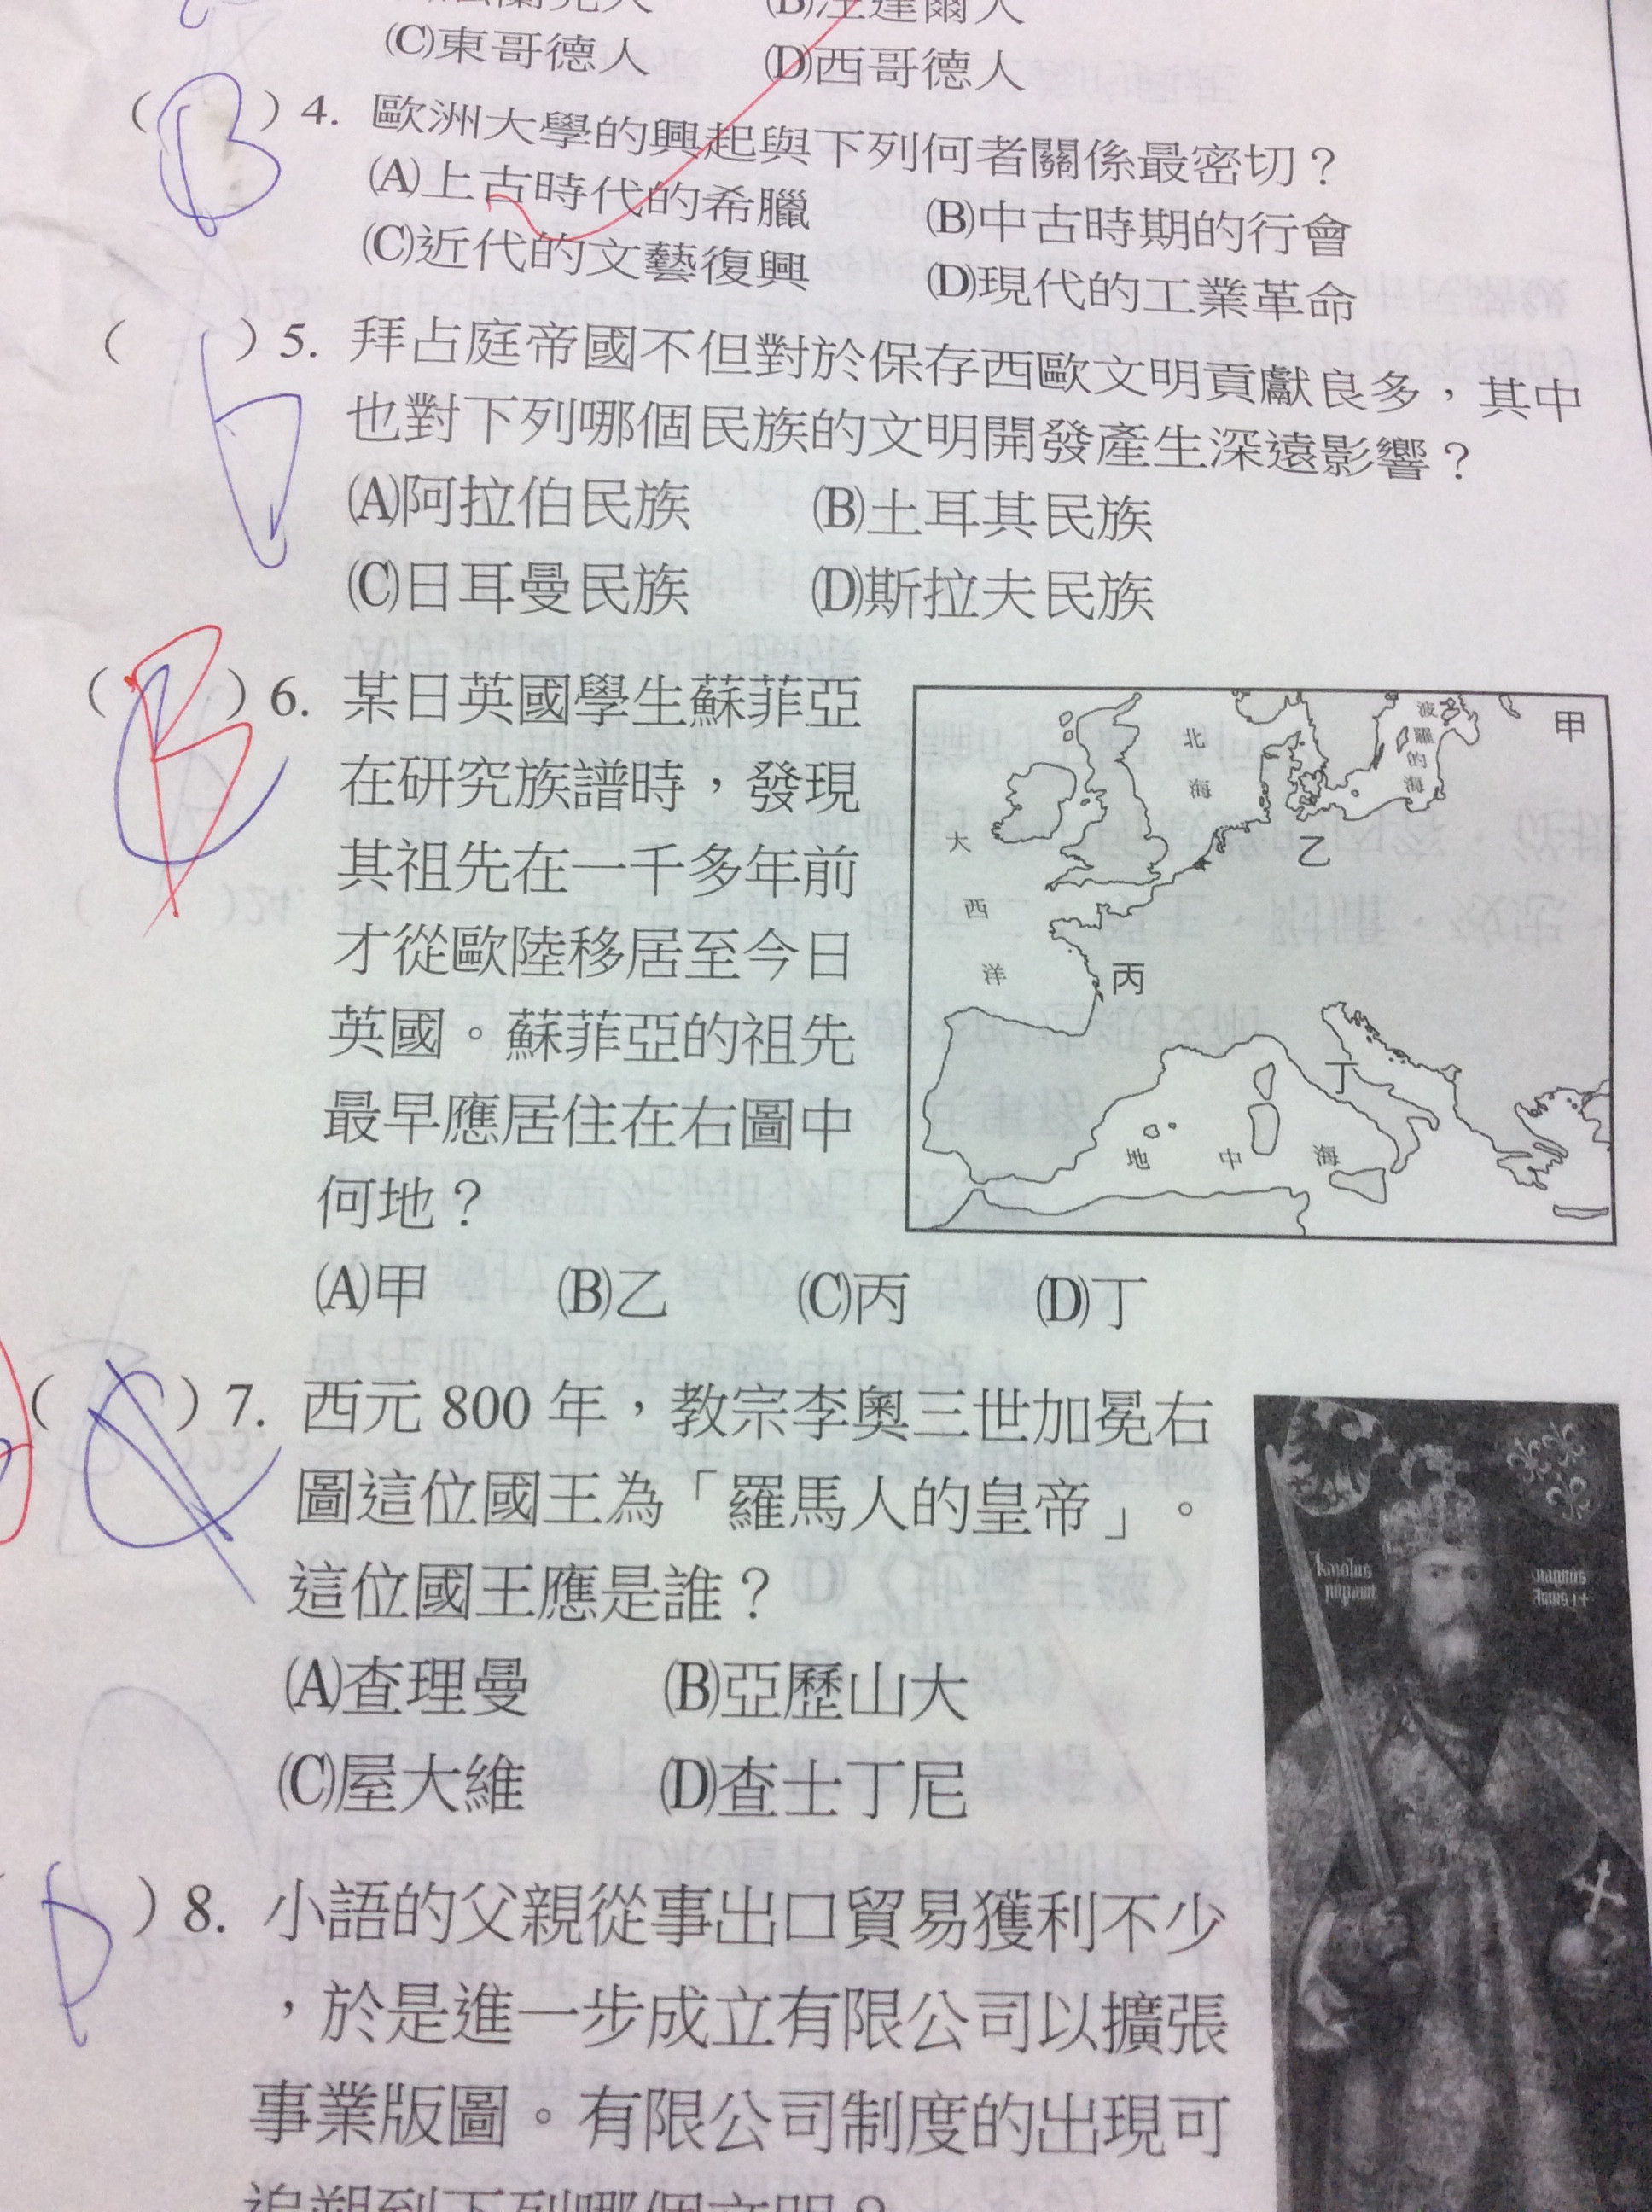 (B)汪達爾人
(C)東哥德人 (D)西哥德人
( B )4. 歐洲大學的興起與下列何者關係最密切？
(A)上古時代的希臘 (B)中古時期的行會
(C)近代的文藝復興 (D)現代的工業革命
( D )5. 拜占庭帝國不但對於保存西歐文明貢獻良多，其中
也對下列哪個民族的文明開發產生深遠影響？
(A)阿拉伯民族 (B)土耳其民族
(C)日耳曼民族 (D)斯拉夫民族
( B )6. 某日英國學生蘇菲亞
在研究族譜時，發現
其祖先在一千多年前
才從歐陸移居至今日
英國。蘇菲亞的祖先
最早應居住在右圖中
何地？
甲
波羅的海
北海
乙
大西洋
丙
丁
地中海
(A)甲 (B)乙 (C)丙 (D)丁
( )7. 西元 800 年，教宗李奧三世加冕右
圖這位國王為「羅馬人的皇帝」。
這位國王應是誰？
(A)查理曼 (B)亞歷山大
(C)屋大維 (D)查士丁尼
karolus magnus
D )8. 小語的父親從事出口貿易獲利不少
，於是進一步成立有限公司以擴張
事業版圖。有限公司制度的出現可
追朔到下列哪個文明？